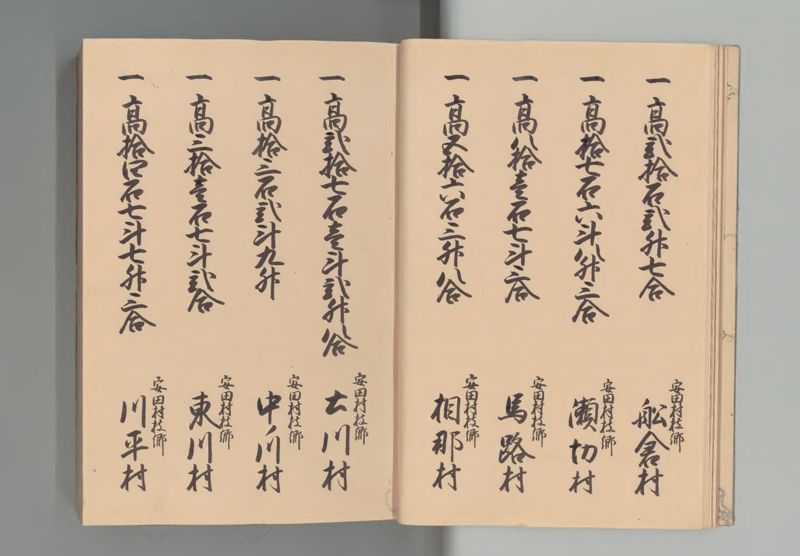 一 高弐拾石弐升七合 安田村枝郷 舩倉村
一 高拾七石六斗八升三合 安田村枝郷 瀬切村
一 高八拾壱石七斗三合 安田村枝郷 馬路村
一 高五拾六石三升八合 安田村枝郷 相那村
一 高弐拾七石壱斗弐升八合 安田村枝郷 土川村
一 高拾三石弐斗九升 安田村枝郷 中ノ川村
一 高三拾壱石七斗弐合 安田村枝郷 東川村
一 高拾四石七斗七升三合 安田村枝郷 川平村